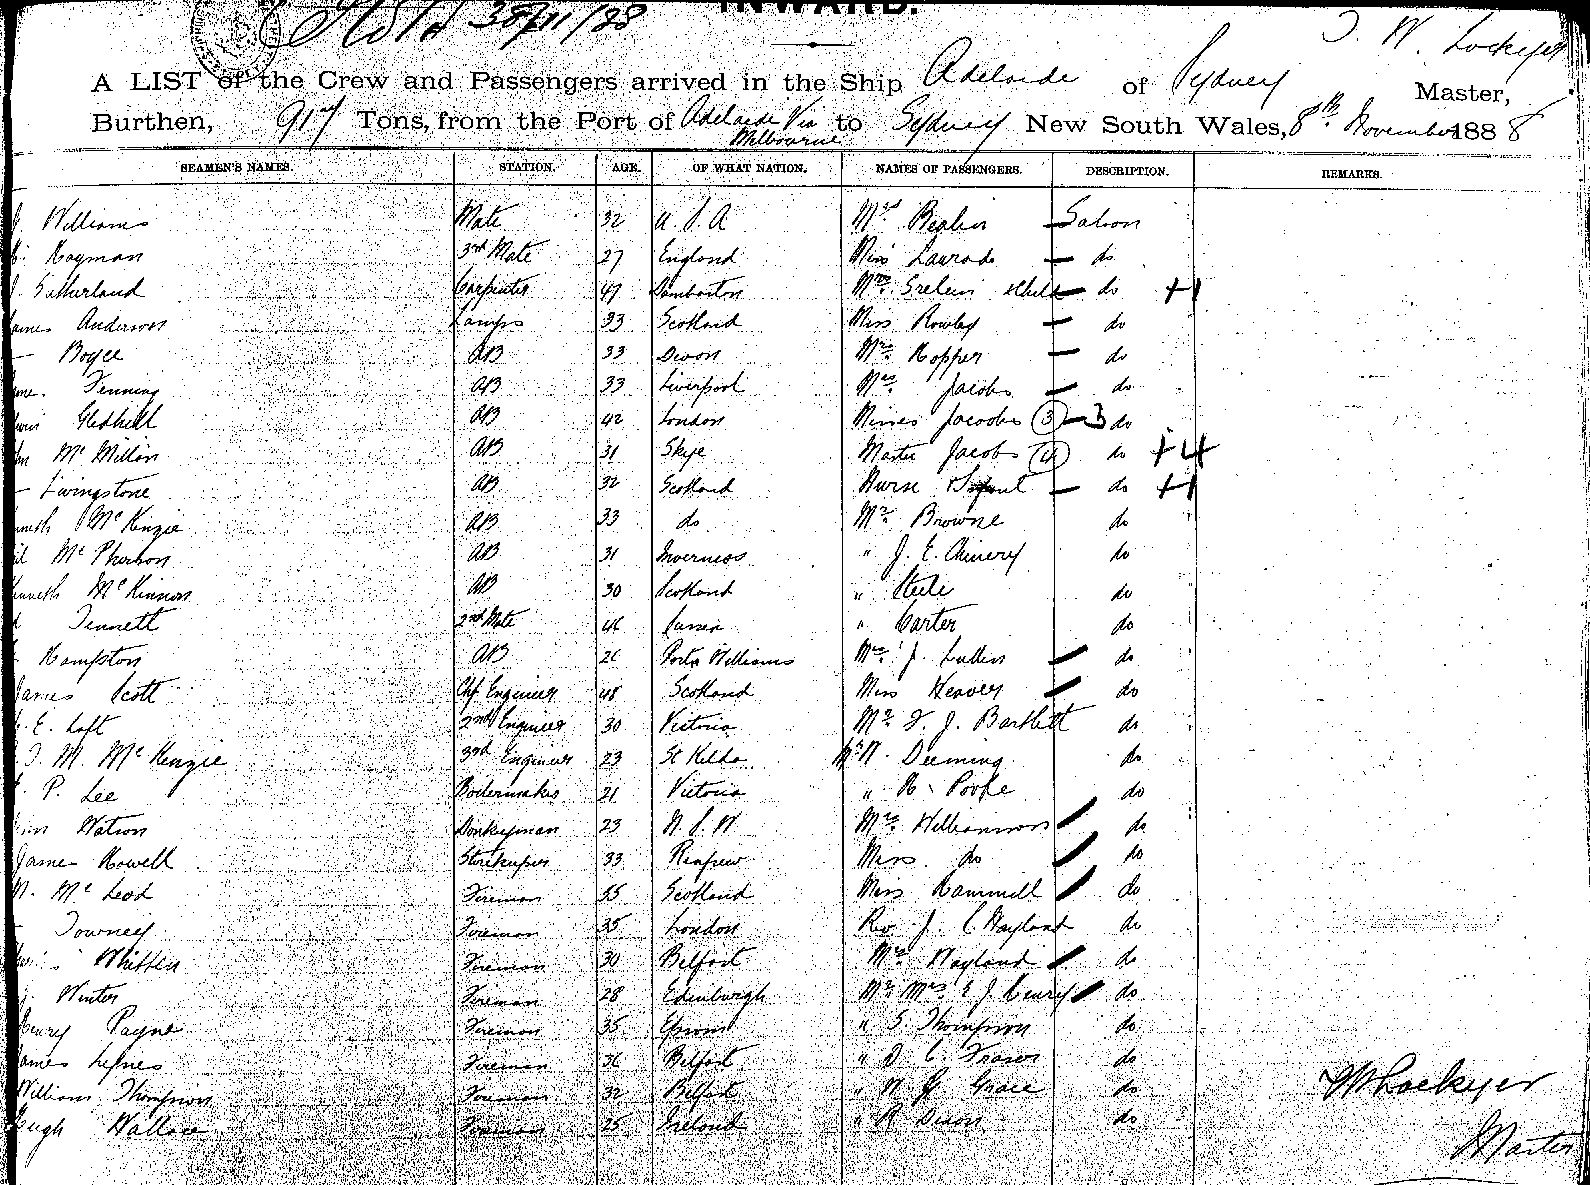 INWARD.
J. W. Lockyer
A LIST of the Crew and Passengers arrived in the Ship Adelaide of Sydney Master,
Burthen, 917 Tons, from the Port of Adelaide Via Melbourne to Sydney New South Wales, 8th November 1888
SEAMEN'S NAMES. STATION. AGE. OF WHAT NATION. NAMES OF PASSENGERS. DESCRIPTION. REMARKS.
Williams Mate 32 Mrs Saloon
Hayman 3rd Mate 27 England Miss do
Sutherland Carpenter 47 Dumbarton Mrs &Child do +1
James Anderson Lamps 33 Scotland Miss Rowley do
Boyce AB 33 Devon Mrs Hopper do
Fenning AB 33 Liverpool Mrs Jacobs do
Gledhill AB 42 London Misses Jacobs (3) 3 do
Mc Millan AB 31 Skye Master Jacobs (4) do +4
Livingstone AB 32 Scotland Nurse Infant do +1
Kenneth McKenzie AB 33 do Mr Browne do
McPherson AB 31 Inverness " J. E. Chinery do
Kenneth McKinnon AB 30 Scotland " Steele do
Tennett 2nd Mate 46 " Carter do
Hampton AB 26 Port Williams Mrs J. Lullin do
James Scott Chf Engineer 48 Scotland Miss Heavey do
E. Loft 2nd Engineer 30 Victoria Mr F. J. Bartlett do
J. M. McKenzie 3rd Engineer 23 St Kilda Mr Deeming do
P. Lee Boilermaker 21 Victoria " R. Poole do
Watson Donkeyman 23 N S W Mrs Williamson do
James Howell Storekeeper 33 Renfrew Miss do do
N. McLeod Fireman 35 Scotland Miss Hammill do
Towney Fireman 35 London Rev J. C. Wayland do
Whitten Fireman 30 Belfast Mrs Wayland do
Winter Fireman 28 Edinburgh Mr Mrs E J Henry do
Henry Payne Fireman 35 Epsom " S Thompson do
James Lynes Fireman 36 Belfast " D C Fraser do
William Thompson Fireman 32 Belfast " Grace do
Hugh Wallace Fireman 25 Ireland " R Dixon do
JW Lockyer
Master